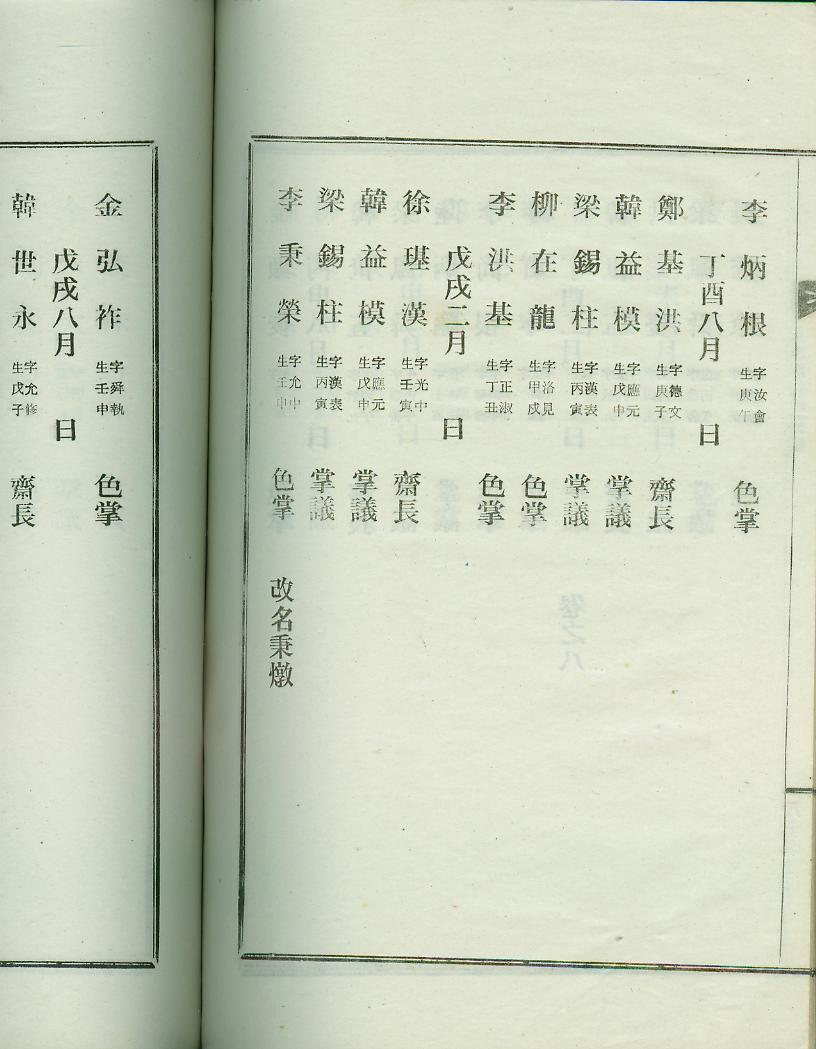 李炳根 字汝會 生庚午 色掌
丁酉八月 日
鄭基洪 字德文 生庚子 齋長
韓益模 字應元 生戊申 掌議
梁錫柱 字漢表 生丙寅 掌議
柳在龍 字洛見 生甲戌 色掌
李洪基 字正淑 生丁丑 色掌
戊戌二月 日
徐琪漢 字光中 生壬寅 齋長
韓益模 字應元 生戊申 掌議
梁錫柱 字漢表 生丙寅 掌議
李秉榮 字允中 生壬申 色掌 改名秉燉
金弘祚 字舜執 生壬申 色掌
戊戌八月 日
韓世永 字允修 生戊子 齋長